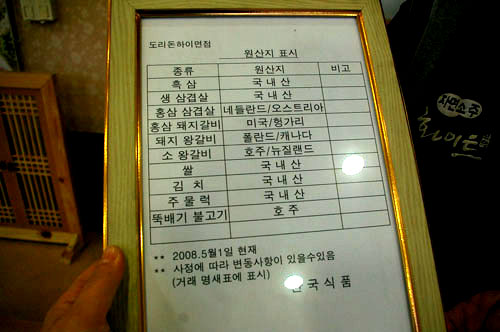 도리돈하이면점
원산지 표시
종류 원산지 비고
흑 삼 국 내 산
생 삼겹살 국 내 산
홍삼 삼겹살 네들란드/오스트리아
홍삼 돼지갈비 미국/헝가리
돼지 왕갈비 폴란드/캐나다
소 왕갈비 호주/뉴질랜드
쌀 국 내 산
김 치 국 내 산
주 물 럭 국 내 산
뚝배기 불고기 호 주
** 2008.5월1일 현재
** 사정에 따라 변동사항이 있을수있음
(거래 명새표에 표시)
국 식 품
자연소주
화이트